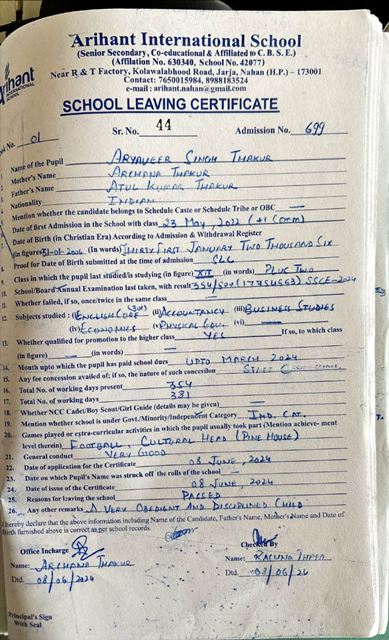 Arihant International School
(Senior Secondary, Co-educational & Affiliated to C. B. S. E.)
(Affilation No. 630340, School No. 42077)
Near R & T Factory, Kolawalabhood Road, Jarja, Nahan (H.P.) – 173001
Contact: 7650015984, 8988183524
e-mail : arihant.nahan@gmail.com
Arihant
INTERNATIONAL SCHOOL
SCHOOL LEAVING CERTIFICATE
No. 01 Sr. No. 44 Admission No. 699
1. Name of the Pupil ARYAVEER SINGH THAKUR
2. Mother's Name ARCHANA THAKUR
3. Father's Name ATUL KUMAR THAKUR
4. Nationality INDIAN
Mention whether the candidate belongs to Schedule Caste or Schedule Tribe or OBC —
Date of first Admission in the School with class 23 May, 2022 (+1 Comm)
Date of Birth (in Christian Era) According to Admission & Withdrawal Register
(in figures) 31-01-2006 (In words) THIRTY FIRST JANUARY TWO THOUSAND SIX
Proof for Date of Birth submitted at the time of admission SLC
Class in which the pupil last studied/is studying (in figure) XII (in words) PLUS TWO
School/Board Annual Examination last taken, with result 354/500 SSCE-2024
Whether failed, if so, once/twice in the same class —
12. Subjects studied : (i) ENGLISH CORE (301) (ii) ACCOUNTANCY (iii) BUSINESS STUDIES
(iv) ECONOMICS (v) PHYSICAL EDU. (vi) —
13. Whether qualified for promotion to the higher class YES If so, to which class
(in figure) — (in words) —
14. Month upto which the pupil has paid school dues UPTO MARCH 2024
15. Any fee concession availed of; if so, the nature of such concession STAFF
16. Total No. of working days present 354
17. Total No. of working days 381
18. Whether NCC Cadet/Boy Scout/Girl Guide (details may be given) —
19. Mention whether school is under Govt./Minority/Independent Category IND. CAT.
20. Games played or extra-curricular activities in which the pupil usually took part (Mention achieve- ment
level therein) FOOTBALL, CULTURAL HEAD (PINE HOUSE)
21. General conduct VERY GOOD
22. Date of application for the Certificate 08 JUNE, 2024
23. Date on which Pupil's Name was struck off the rolls of the school —
24. Date of issue of the Certificate 08 JUNE, 2024
25. Reasons for leaving the school PASSED
26. Any other remarks A VERY OBEDIENT AND DISCIPLINED CHILD
I hereby declare that the above information including Name of the Candidate, Father's Name, Mother's Name and Date of
Birth furnished above is correct as per school records.
Office Incharge Checked By
Name: ARCHANA THAKUR Name:
Dtd. 08/06/2024 Dtd. 08/06/24
Principal's Sign
With Seal